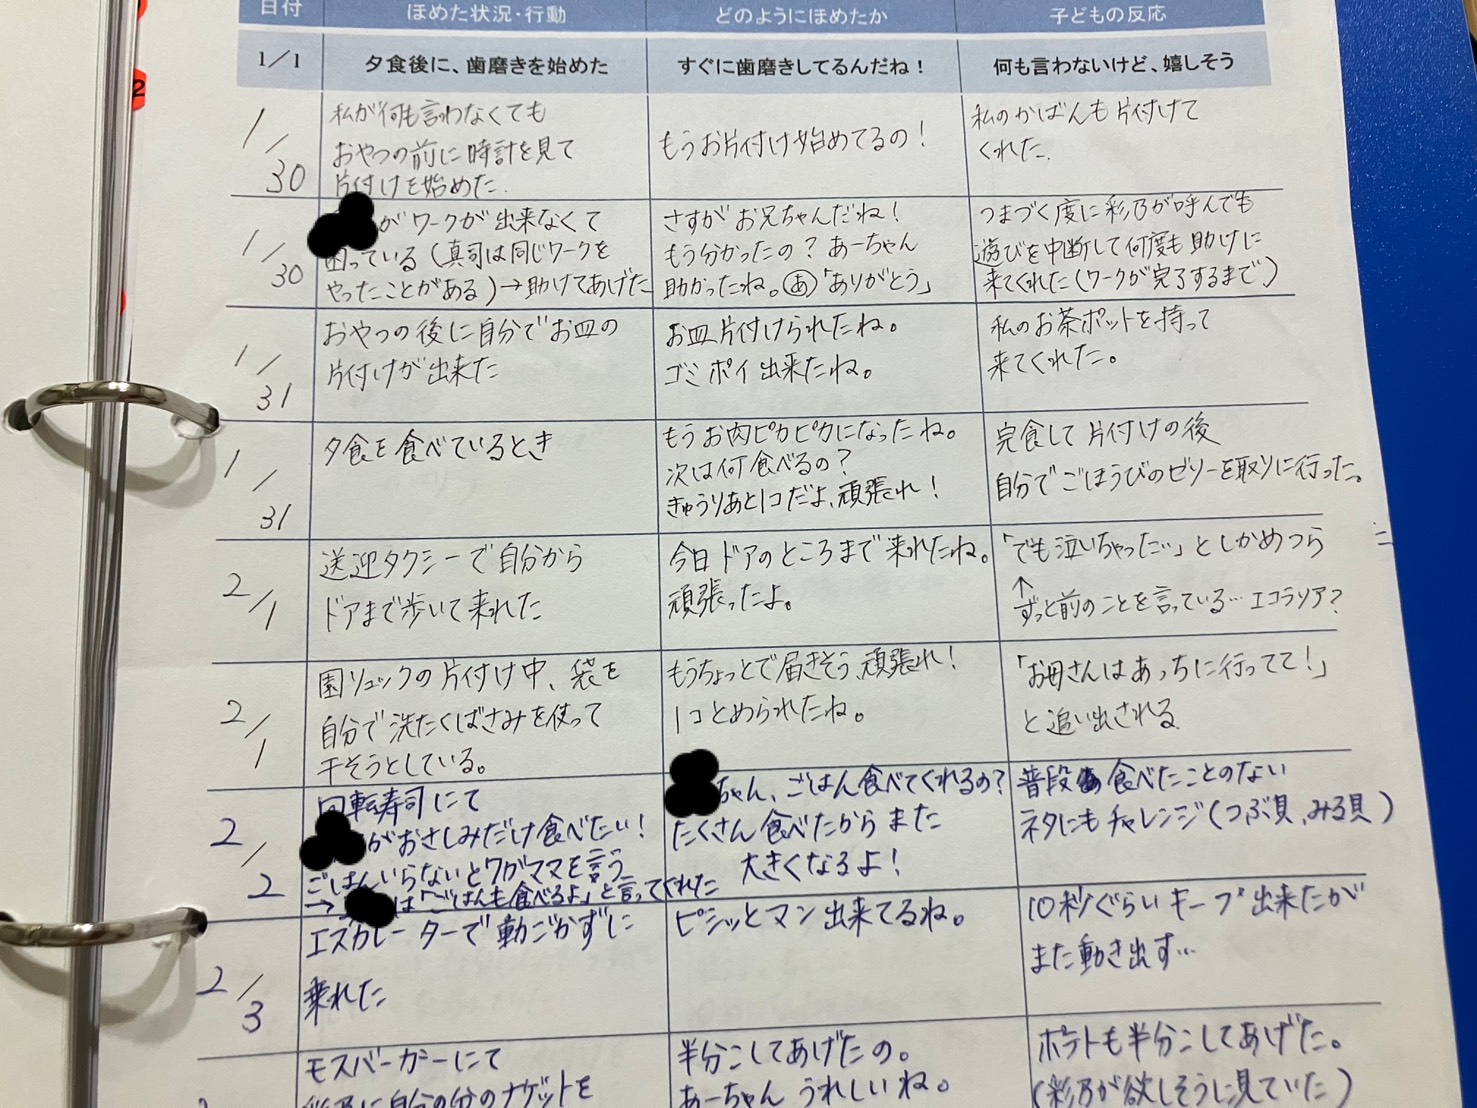 日付
ほめた状況・行動
どのようにほめたか
子どもの反応
1/1
夕食後に、歯磨きを始めた
すぐに歯磨きしてるんだね！
何も言わないけど、嬉しそう
1/30
私が何も言わなくても
おやつの前に時計を見て
片付けを始めた.
もうお片付け始めてるの！
私のかばんも片付けて
くれた.
1/30
がワークが出来なくて
困っている（真司は同じワークを
やったことがある）→助けてあげた
さすがお兄ちゃんだね！
もう分かったの？あーちゃん
助かったね。あ「ありがとう」
つまづく度に彩乃が呼んでも
遊びを中断して何度も助けに
来てくれた（ワークが完了するまで）
1/31
おやつの後に自分でお皿の
片付けが出来た
お皿片付けられたね。
ゴミポイ出来たね。
私のお茶ポットを持って
来てくれた。
1/31
夕食を食べているとき
もうお肉ピカピカになったね。
次は何食べるの？
きゅうりあと1コだよ、頑張れ！
完食して片付けの後
自分でごほうびのゼリーを取りに行った。
2/1
送迎タクシーで自分から
ドアまで歩いて来れた
今日ドアのところまで来れたね。
頑張ったよ。
「でも泣いちゃった…」としかめつら
↑
ずっと前のことを言っている…エコラリア？
2/1
園リュックの片付け中、袋を
自分で洗たくばさみを使って
干そうとしている。
もうちょっとで届きそう、頑張れ！
1コとめられたね。
「お母さんはあっちに行ってて！」
と追い出される
2/2
回転寿司にて
がおさしみだけ食べたい！
ごはんいらないとワガママを言う
→は「ごはんも食べるよ」と言ってくれた
ちゃん、ごはん食べてくれるの？
たくさん食べたからまた
大きくなるよ！
普段食べたことのない
ネタにもチャレンジ（つぶ貝、みる貝）
2/3
エスカレーターで動ごかずに
乗れた
ピシッとマン出来てるね。
10秒ぐらいキープ出来たが
また動き出す…
モスバーガーにて
彩乃に自分の分のナゲットを
半分こしてあげたの。
あーちゃんうれしいね。
ポテトも半分こしてあげた。
（彩乃が欲しそうに見ていた）